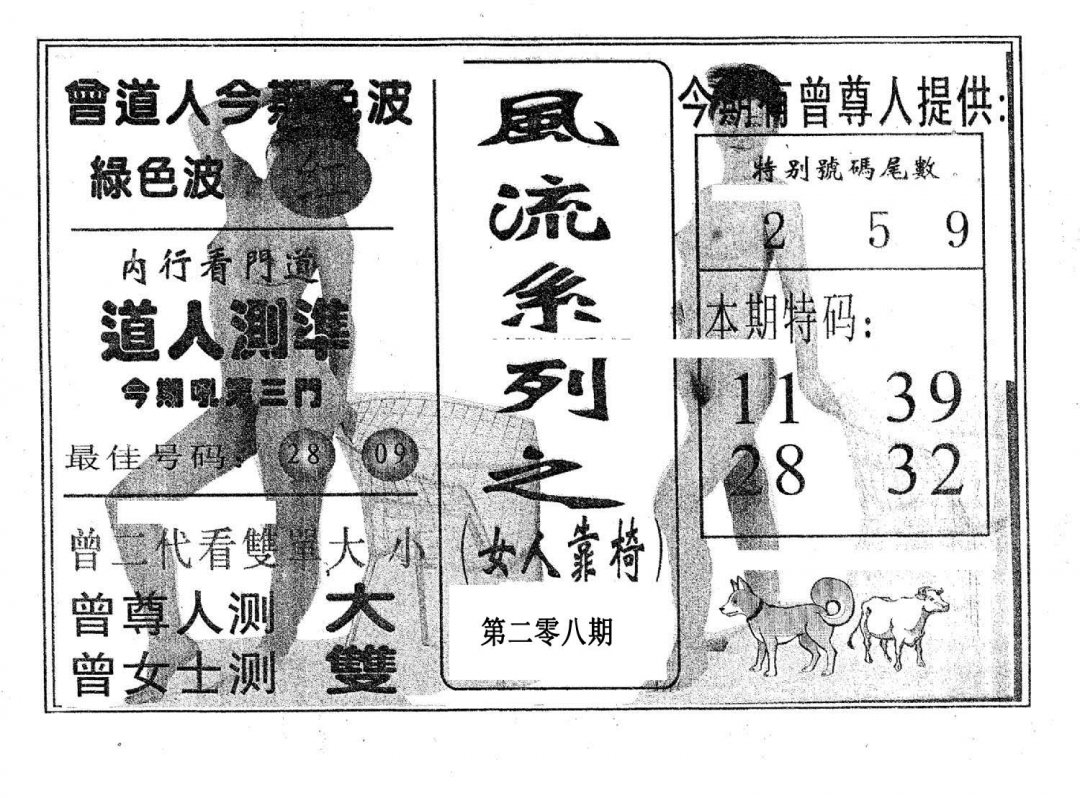 曾道人今期色波
綠色波 红
內行看門道
道人測準
今期 三門
最佳号码: 28 09
曾二代看雙單大小
曾尊人测 大
曾女士测 雙
風流系列之
(女人靠椅)
第二零八期
今期有曾尊人提供:
特别號碼尾數
2 5 9
本期特码:
11 39
28 32